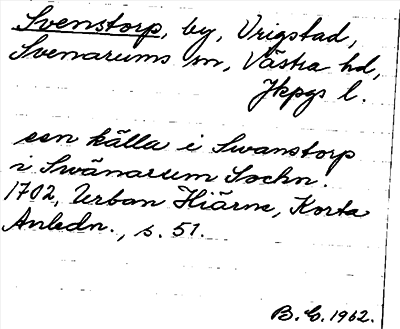 Svenstorp, by, Vrigstad,
Svenarums sn, Västra hd,
Jkpgs l.
een källa i Swanstorp
i Swänarum Sochn.
1702, Urban Hiärne, Korta
Anledn., s. 51.
B. E. 1962.